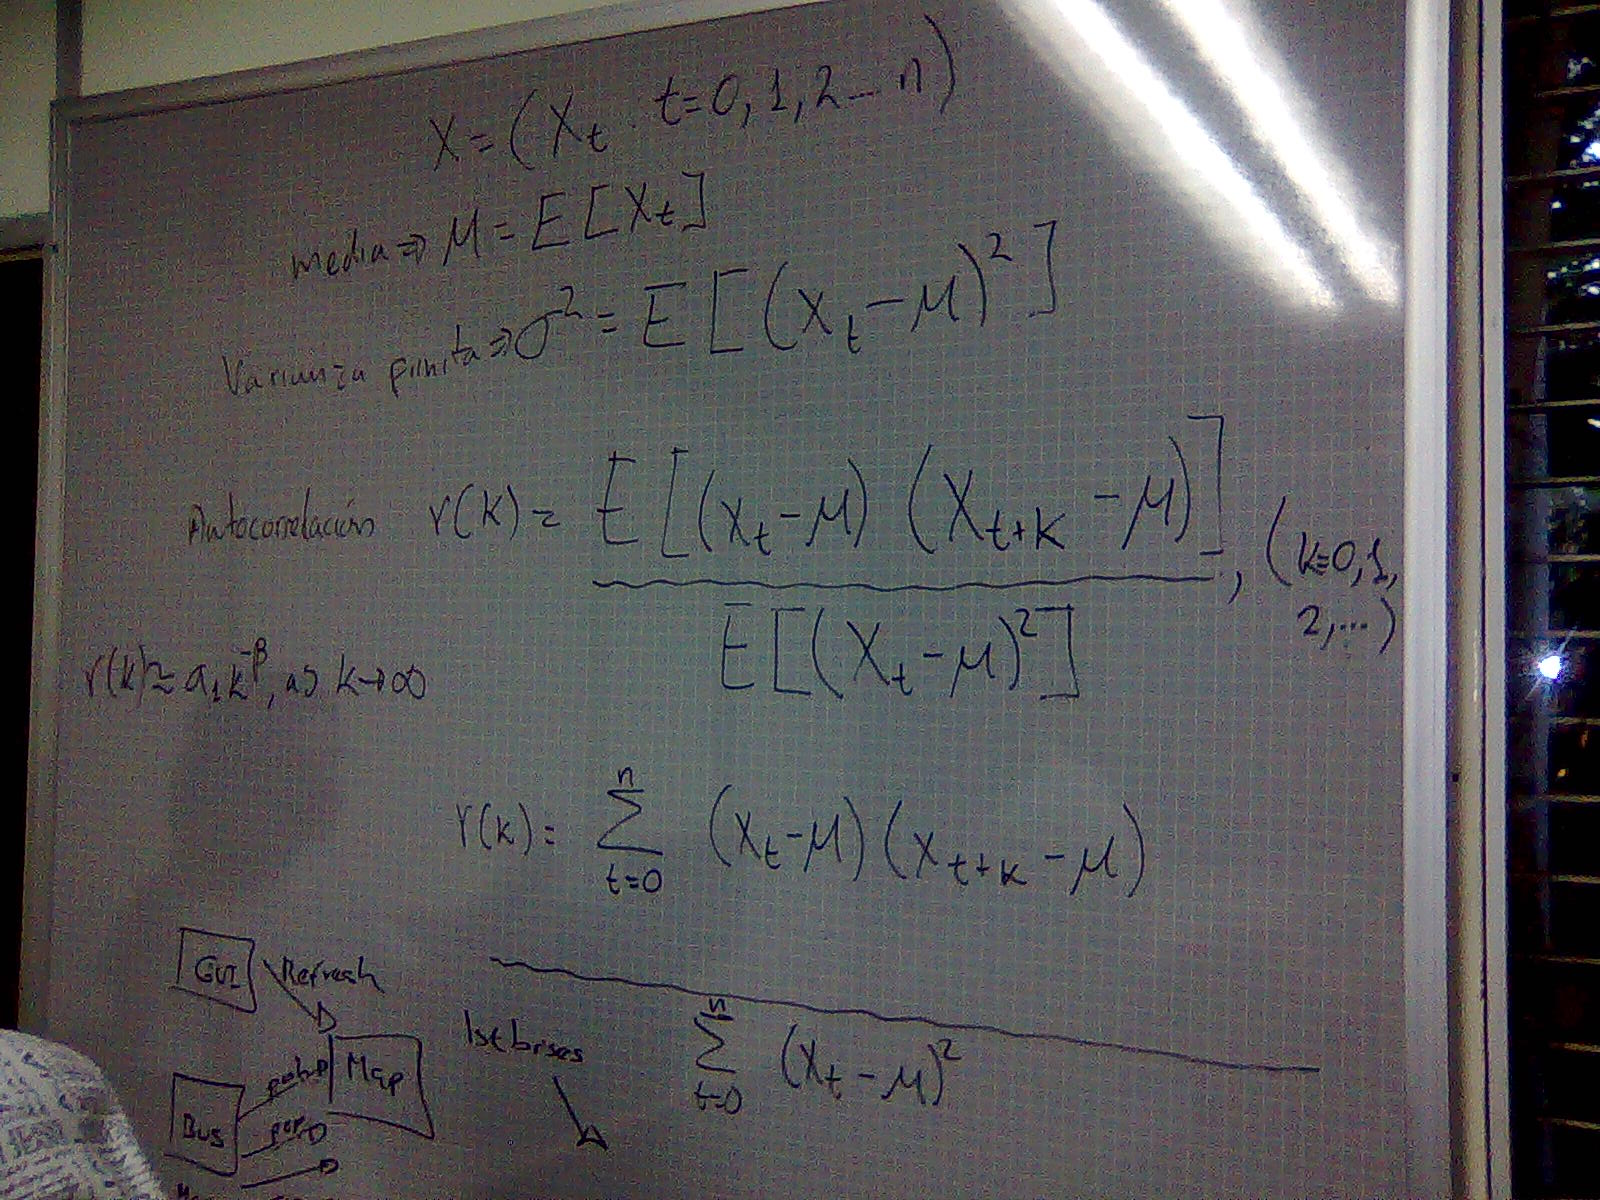 X = (X_t t=0,1,2...n)
media ⇒ μ = E[X_t]
Varianza finita ⇒ σ² = E[(X_t - μ)²]
Autocorrelación r(k) = E[(X_t - μ) (X_{t+k} - μ)]
, (k=0,1,
2,...)
E[(X_t - μ)²]
r(k) ≈ a₁k^{-β}, as k→∞
r(k) = Σ_{t=0}^{n} (X_t - μ)(X_{t+k} - μ)
Σ_{t=0}^{n} (X_t - μ)²
GUI
Refresh
Map
Bus